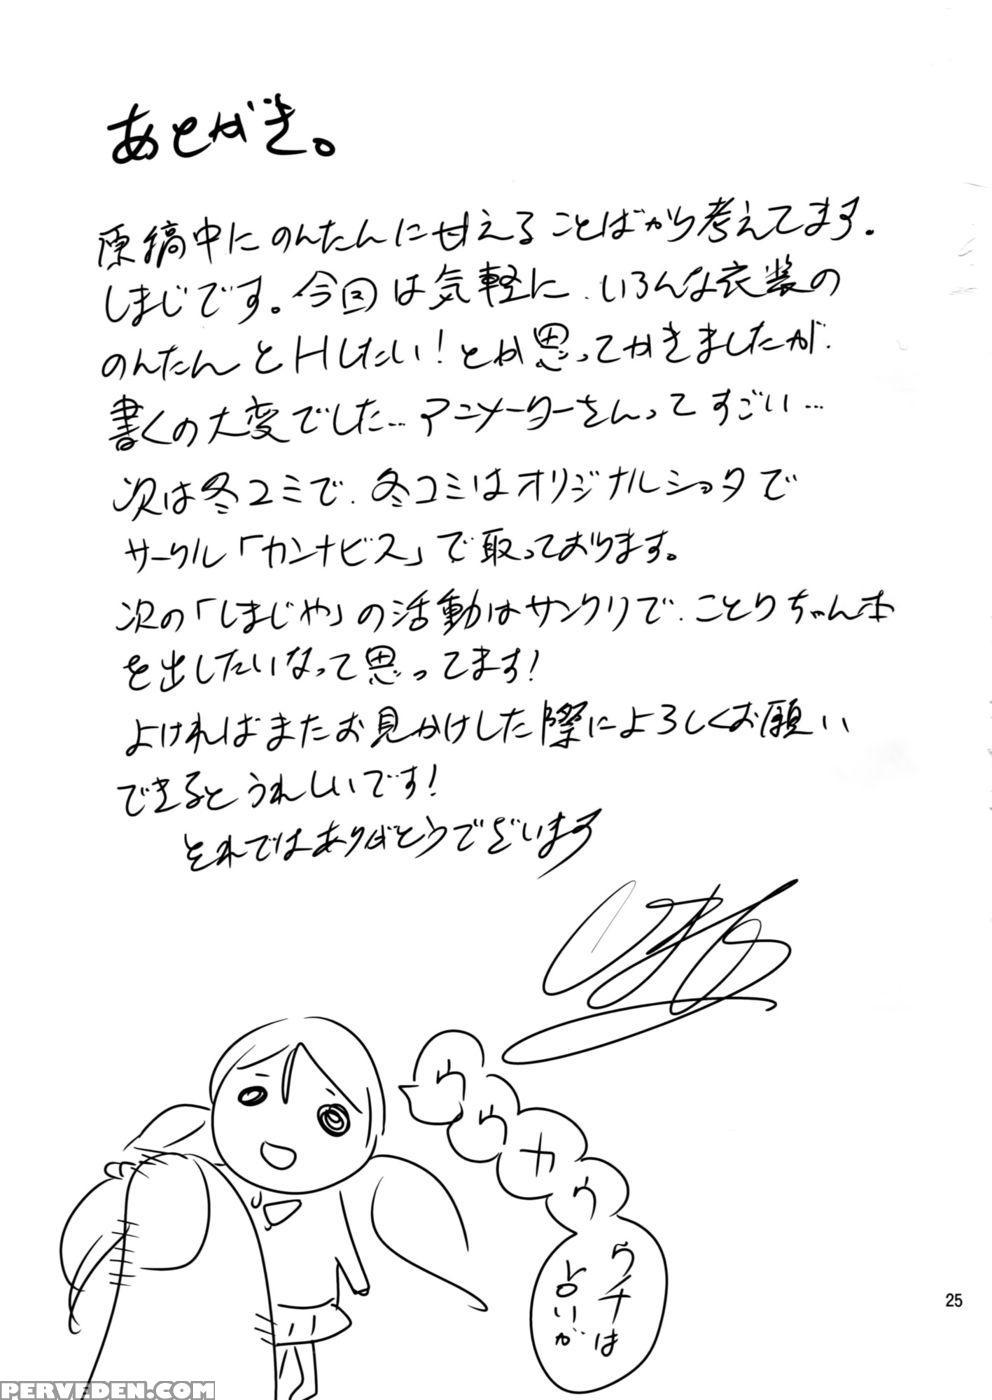 あとがき。
原稿中にのんたんに甘えることばかり考えてます。
しまじです。今回は気軽に、いろんな衣装の
のんたんとHしたい！とか思ってかきましたが、
書くの大変でした…アニメーターさんってすごい…
次は冬コミで、冬コミはオリジナルショタで
サークル「カンナビス」で取っております。
次の「しまじや」の活動はサンクリで、ことりちゃん本
を出したいなって思ってます！
よければまたお見かけした際によろしくお願い
できるとうれしいです！
それではありがとうございます
ウチは
25
PERVEDEN.COM